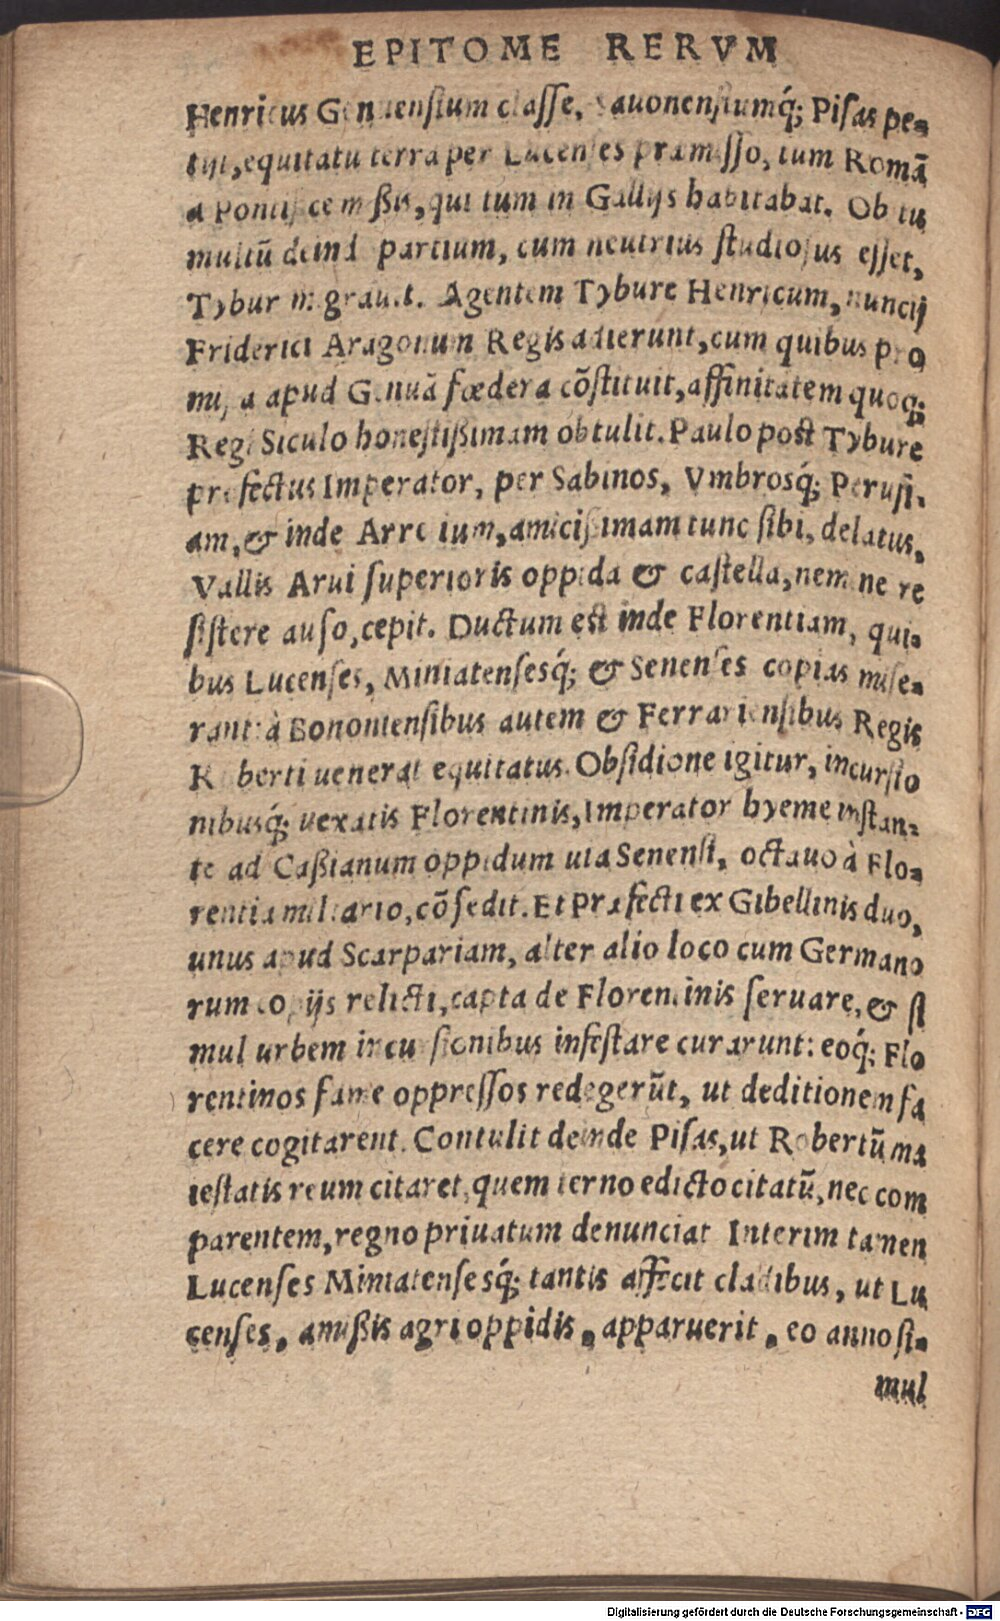 EPITOME RERVM
Henricus Genuensium classe, Sauonensiumq́; Pisas pe-
tijt, equitatu terra per Lucenses præmisso, tum Romã
a Pontifice missis, qui tum in Gallijs habitabat. Ob tu
multũ deind partium, cum neutrius studiosus esset,
Tybur migrauit. Agentem Tybure Henricum, nuncij
Friderici Aragonum Regis adierunt, cum quibus pro
missa apud Genuã fœdera cõstituit, affinitatem quoq;
Regi Siculo honestißimam obtulit. Paulo post Tybure
profectus Imperator, per Sabinos, Vmbrosq́; Perusi-
am, & inde Arretium, amicißimam tunc sibi, delatus,
Vallis Arui superioris oppida & castella, nemine re
sistere auso, cepit. Ductum est inde Florentiam, qui-
bus Lucenses, Miniatensesq́; & Senenses copias mise-
rant: à Bononiensibus autem & Ferrariensibus Regis
Roberti uenerat equitatus. Obsidione igitur, incursio
nibusq́; uexatis Florentinis, Imperator hyeme instan-
te ad Caßianum oppidum uia Senensi, octauo à Flo-
rentia miliario, cõsedit. Et Præfecti ex Gibellinis duo,
unus apud Scarpariam, alter alio loco cum Germano
rum copijs relicti, capta de Florentinis seruare, & si
mul urbem incursionibus infestare curarunt: eoq́; Flo
rentinos fame oppressos redegerũt, ut deditionem fa
cere cogitarent. Contulit deinde Pisas, ut Robertũ ma
iestatis reum citaret, quem terno edicto citatũ, nec com
parentem, regno priuatum denunciat Interim tamen
Lucenses Miniatensesq́; tantis affecit cladibus, ut Lu
censes, amißis agri oppidis, apparuerit, eo anno si-
mul
Digitalisierung gefördert durch die Deutsche Forschungsgemeinschaft - DFG